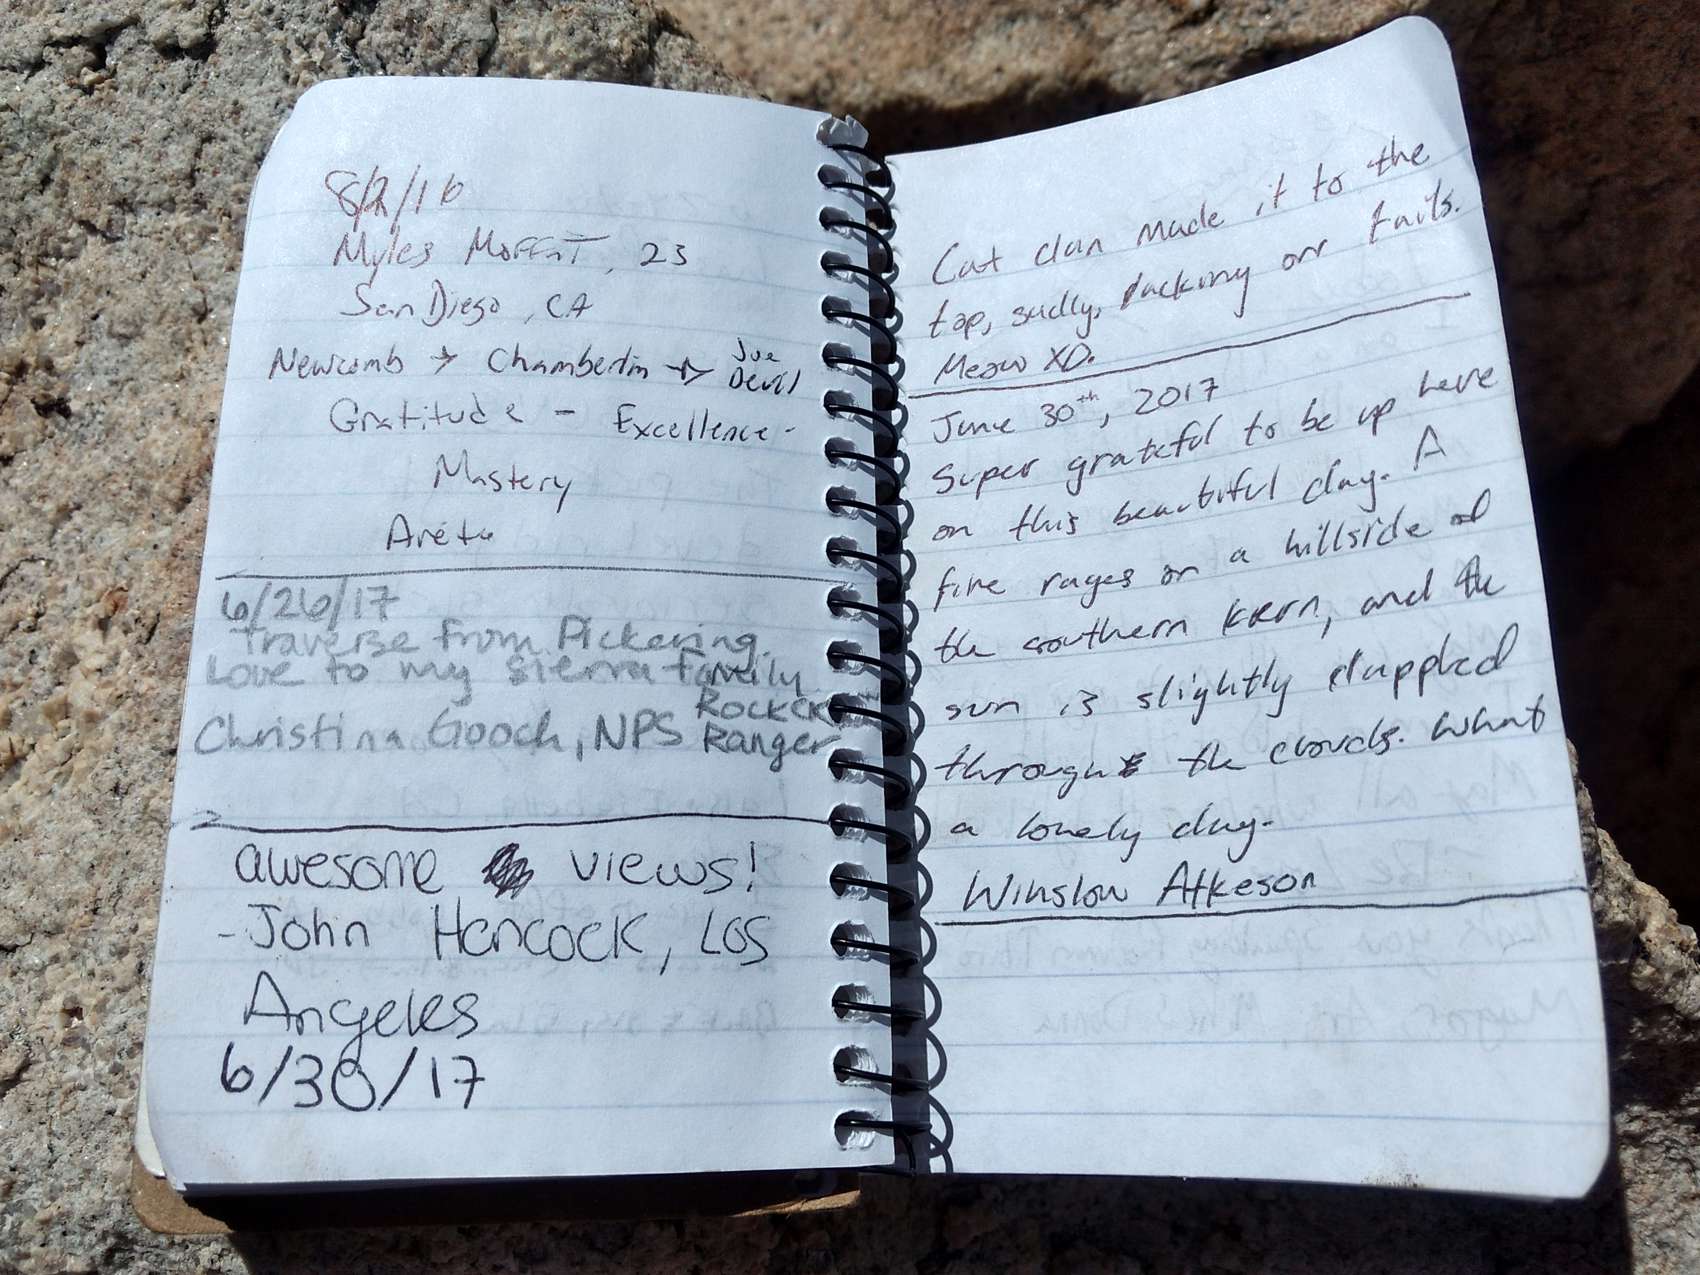 8/2/16
Myles Moffat, 23
San Diego, CA
Newcomb → Chamberlin → Joe Devil
Gratitude - Excellence -
Mastery
Arete
6/26/17
Traverse from Pickering.
Love to my sierra family
Christina Gooch, NPS Rocket Ranger
awesome views!
- John Hancock, Los
Angeles
6/30/17
Cat clan made it to the
top, sadly, lacking our tails.
Meow XD.
June 30th, 2017
Super grateful to be up here
on this beautiful day. A
fire rages on a hillside of
the southern kern, and the
sun is slightly dappled
through the clouds. What
a lonely day.
Winslow Atkeson